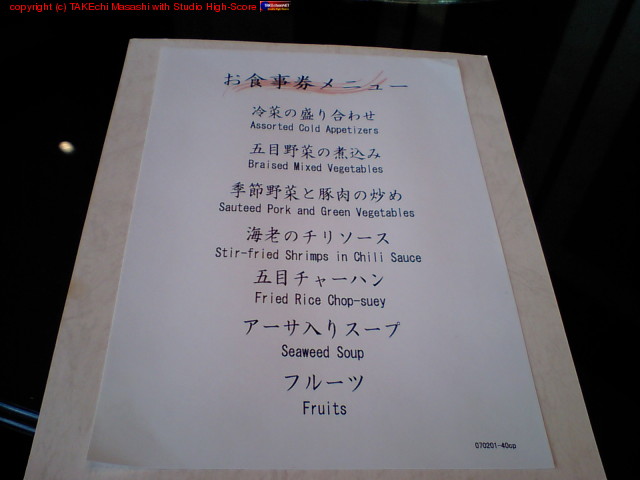 copyright (c) TAKEchi Masashi with Studio High-Score
お食事券メニュー
冷菜の盛り合わせ
Assorted Cold Appetizers
五目野菜の煮込み
Braised Mixed Vegetables
季節野菜と豚肉の炒め
Sauteed Pork and Green Vegetables
海老のチリソース
Stir-fried Shrimps in Chili Sauce
五目チャーハン
Fried Rice Chop-suey
アーサ入りスープ
Seaweed Soup
フルーツ
Fruits
070201-40up